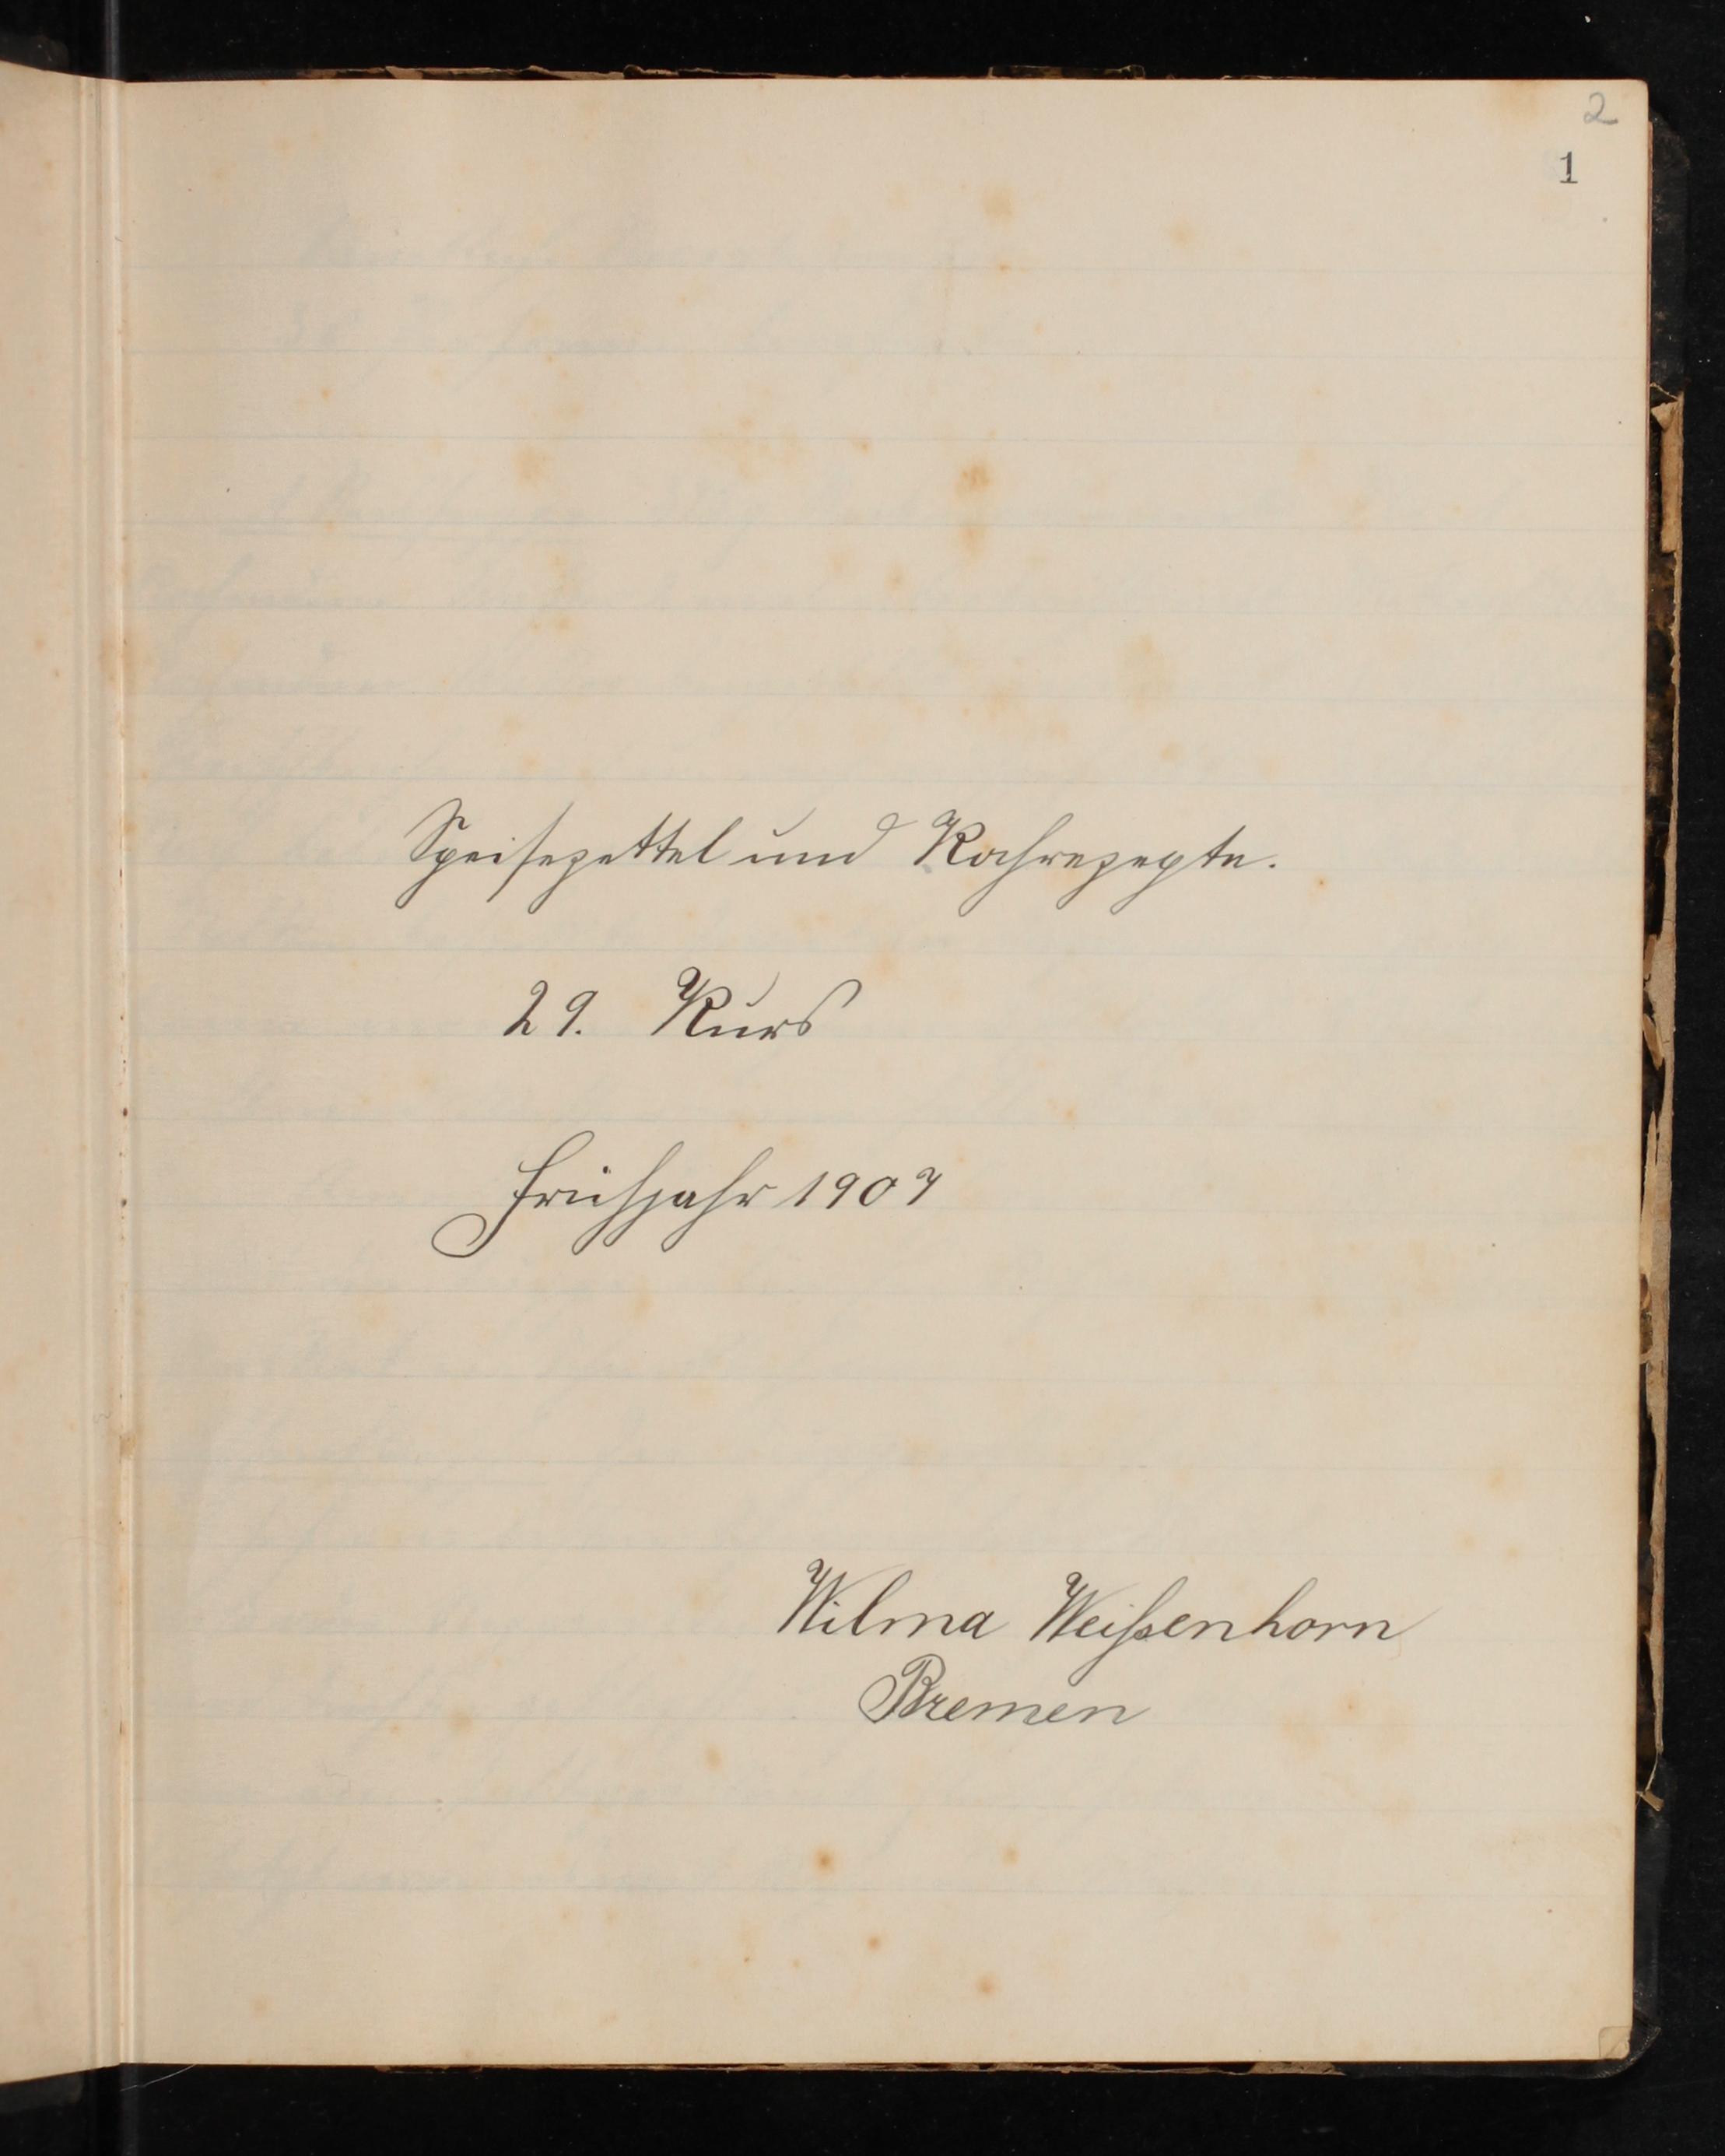 2
1
Speisezettel und Kochrezepte.
29. Kurs
Frühjahr 1907
Wilma Weißenhorn
Bremen